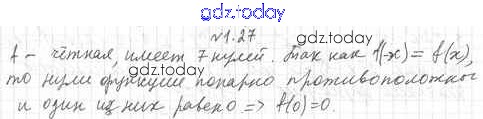 gdz.today
№1.27
gdz.today
f – чётная, имеет 7 нулей. Так как f(-x) = f(x),
то нули функции попарно противоположны
и один из них равен 0 => f(0)=0.
gdz.today